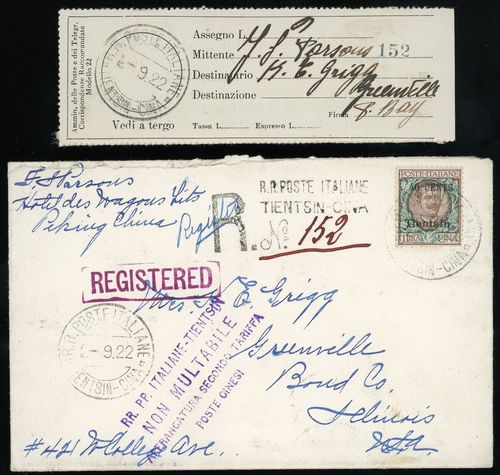 Ammin. delle Poste e dei Telegr.
Corrispondenze Raccomandate
Modello 22
R.R. POSTE ITALIANE
-9.22
TIENTSIN-CINA
Vedi a tergo
Assegno L.
Mittente J. S. Parsons 152
Destinatario K. E. Grigg
Destinazione Greenville
Firma
Tassa L. Espresso L.
J. S Parsons
Hotel des Wagons Lits
Peking China
Register
R.R. POSTE ITALIANE
TIENTSIN-CINA
R. No 152
POSTE ITALIANE
40 CENTS
Tientsin
1 LIRA UNA
TSIN-CINA
REGISTERED
R.R. POSTE ITALIANE
-9.22
TIENTSIN-CINA
RR. PP. ITALIANE-TIENTSIN
NON MULTABILE
AFFRANCATURA SECONDO TARIFFA
POSTE CINESI
Mrs. K E. Grigg
Greenville
Bond Co.
Illinois
USA
#421 W College Ave.